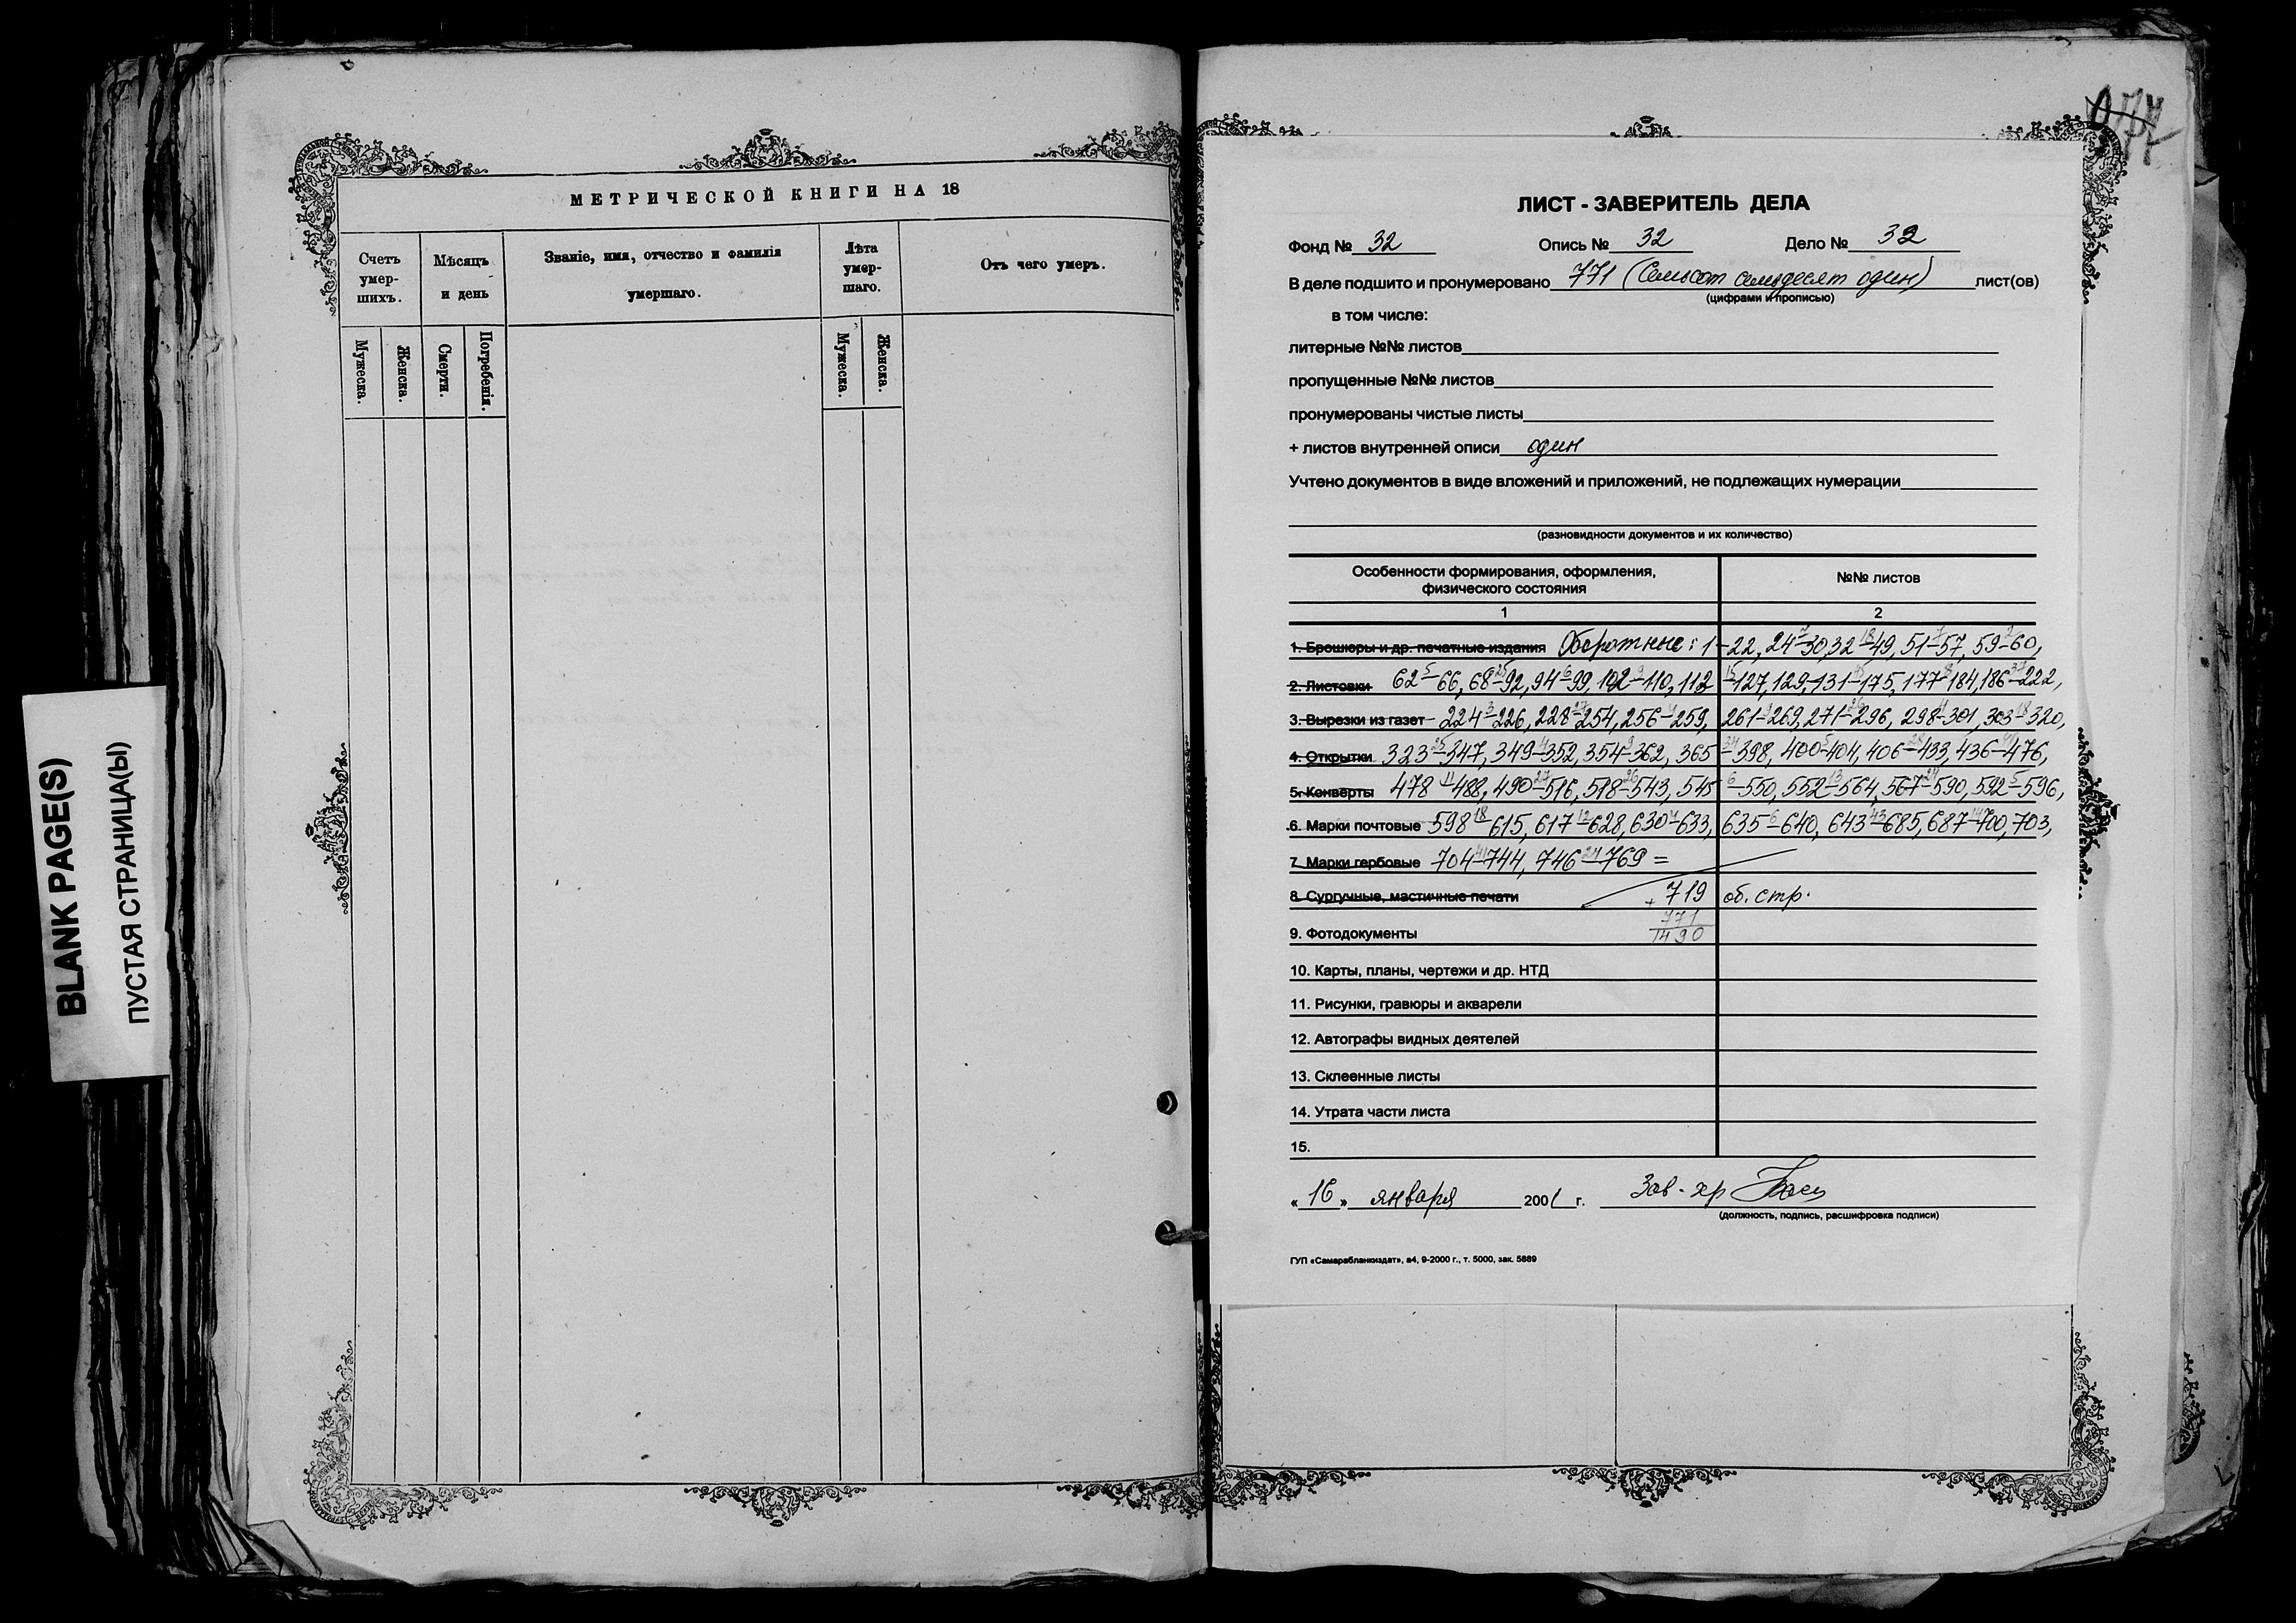 BLANK PAGE(S)
ПУСТАЯ СТРАНИЦА(Ы)
МЕТРИЧЕСКОЙ КНИГИ НА 18
Счетъ умер-шихъ.
Мѣсяцъ и день
Званіе, имя, отчество и фамилія умершаго.
Лѣта умер-шаго.
Отъ чего умеръ.
Мужеска.
Женска.
Смерти.
Погребенія.
Мужеска.
Женска.
ЛИСТ - ЗАВЕРИТЕЛЬ ДЕЛА
Фонд № 32 Опись № 32 Дело № 32
В деле подшито и пронумеровано 771 (Семьсот семьдесят один) лист(ов)
(цифрами и прописью)
в том числе:
литерные №№ листов
пропущенные №№ листов
пронумерованы чистые листы
+ листов внутренней описи один
Учтено документов в виде вложений и приложений, не подлежащих нумерации
(разновидности документов и их количество)
Особенности формирования, оформления, физического состояния
№№ листов
1 2
1. Брошюры и др. печатные издания Оборотные: 1-22, 24-30, 32-49, 51-57, 59-60,
2. Листовки 62-66, 68-92, 94-99, 102-110, 112-127, 129, 131-175, 177-184, 186-222,
3. Вырезки из газет 224-226, 228-254, 256-259, 261-269, 271-296, 298-301, 303-320,
4. Открытки 323-347, 349-352, 354-362, 365-398, 400-404, 406-433, 436-476,
5. Конверты 478-488, 490-516, 518-543, 545-550, 552-564, 567-590, 592-596,
6. Марки почтовые 598-615, 617-628, 630-633, 635-640, 643-685, 687-700, 703,
7. Марки гербовые 704-744, 746-769 =
8. Сургучные, мастичные печати 719 об. стр.
+ 771
9. Фотодокументы 1490
10. Карты, планы, чертежи и др. НТД
11. Рисунки, гравюры и акварели
12. Автографы видных деятелей
13. Склеенные листы
14. Утрата части листа
15.
«16» января 2001 г. Зав. хр
(должность, подпись, расшифровка подписи)
ГУП «Самарабланкиздат», а4, 9-2000 г., т. 5000, зак. 5889